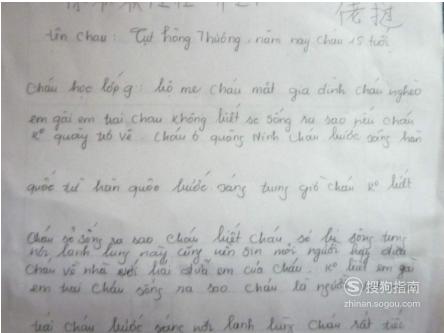 佬挝
tên cháu: Tự hồng Thương năm nay cháu 15 tuổi
Cháu học lớp 9: bố mẹ cháu mất gia đình cháu nghèo
em gái em trai cháu không biết sẽ sống ra sao nếu cháu
Ko quay trở về. Cháu ở quảng Ninh Cháu bước sang hàn
quốc từ hàn quốc bước sang trung giờ cháu Ko biết
Cháu sẽ sống ra sao. Cháu biết cháu sẽ bị sống trong
nơi lạnh lùng này cũng nên xin mời người hãy đưa
Cháu về nhà với hai đứa em của cháu. Ko biết em gái
em trai cháu sống ra sao. Cháu là người
trai cháu bước sang nơi lạnh lùng cháu rất
搜狗指南
zhinan.sogou.com